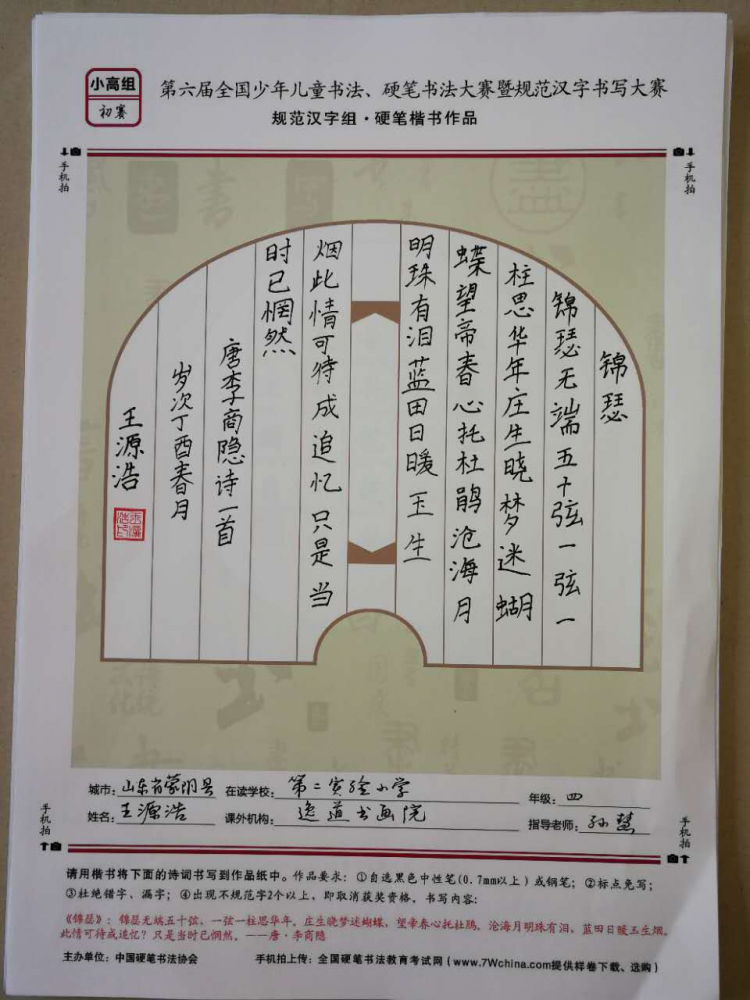 小高组
初赛
第六届全国少年儿童书法、硬笔书法大赛暨规范汉字书写大赛
规范汉字组·硬笔楷书作品
手机拍
手机拍
锦瑟
锦瑟无端五十弦一弦一
柱思华年庄生晓梦迷蝴
蝶望帝春心托杜鹃沧海月
明珠有泪蓝田日暖玉生
烟此情可待成追忆只是当
时已惘然
唐李商隐诗一首
岁次丁酉春月
王源浩
城市：山东省蒙阴县 在读学校：第二实验小学 年级：四
姓名：王源浩 课外机构：逸道书画院 指导老师：孙慧
手机拍
手机拍
请用楷书将下面的诗词书写到作品纸中。作品要求：①自选黑色中性笔(0.7mm以上)或钢笔；②标点免写；
③杜绝错字、漏字；④出现不规范字2个以上，即取消获奖资格。书写内容：
《锦瑟》：锦瑟无端五十弦，一弦一柱思华年。庄生晓梦迷蝴蝶，望帝春心托杜鹃。沧海月明珠有泪，蓝田日暖玉生烟。
此情可待成追忆？只是当时已惘然。——唐·李商隐
主办单位：中国硬笔书法协会 手机拍上传：全国硬笔书法教育考试网（www.7Wchina.com提供样卷下载、选购）